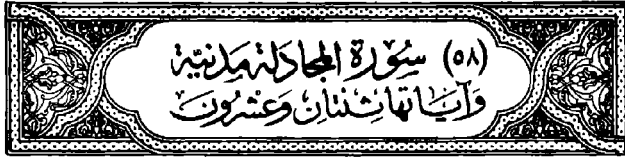 (٥٨) سُورَة المجَادَلة مَدنيّة
وَآيَاتها ثِنتَان وَعشرُونَ